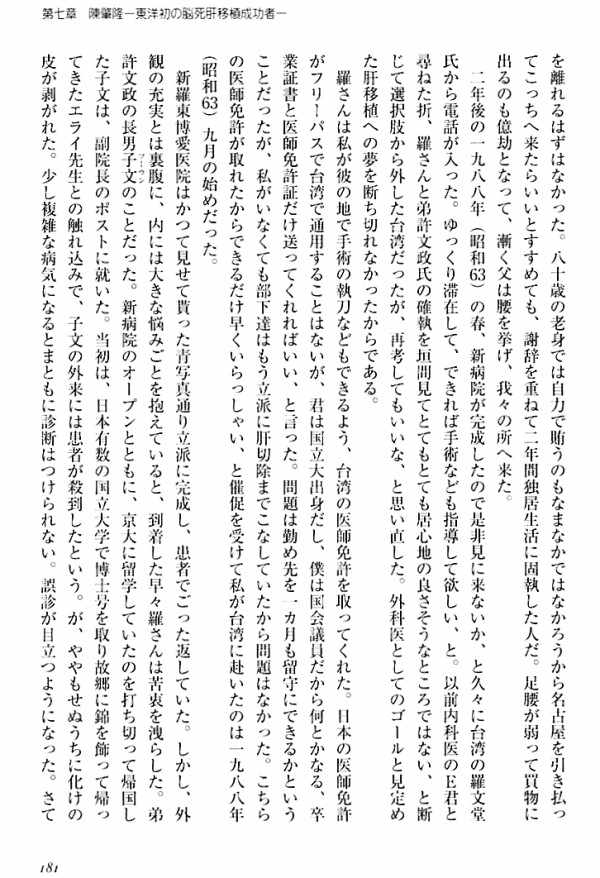 第七章　陳肇隆―東洋初の脳死肝移植成功者―
を離れるはずはなかった。八十歳の老身では自力で賄うのもなまなかではなかろうから名古屋を引き払っ
てこっちへ来たらいいとすすめても、謝辞を重ねて二年間独居生活に固執した人だ。足腰が弱って買物に
出るのも億劫となって、漸く父は腰を挙げ、我々の所へ来た。
　二年後の一九八八年（昭和63）の春、新病院が完成したので是非見に来ないか、と久々に台湾の羅文堂
氏から電話が入った。ゆっくり滞在して、できれば手術なども指導して欲しい、と。以前内科医のE君と
尋ねた折、羅さんと弟許文政氏の確執を垣間見てとてもとても居心地の良さそうなところではない、と断
じて選択肢から外した台湾だったが、再考してもいいな、と思い直した。外科医としてのゴールと見定め
た肝移植への夢を断ち切れなかったからである。
　羅さんは私が彼の地で手術の執刀などもできるよう、台湾の医師免許を取ってくれた。日本の医師免許
がフリーパスで台湾で通用することはないが、君は国立大出身だし、僕は国会議員だから何とかなる、卒
業証書と医師免許証だけ送ってくれればいい、と言った。問題は勤め先を一カ月も留守にできるかという
ことだったが、私がいなくても部下達はもう立派に肝切除までこなしていたから問題はなかった。こちら
の医師免許が取れたからできるだけ早くいらっしゃい、と催促を受けて私が台湾に赴いたのは一九八八年
（昭和63）九月の始めだった。
　新羅東博愛医院はかつて見せて貰った青写真通り立派に完成し、患者でごった返していた。しかし、外
観の充実とは裏腹に、内には大きな悩みごとを抱えていると、到着した早々羅さんは苦衷を洩らした。弟
許文政の長男子文のことだった。新病院のオープンとともに、京大に留学していたのを打ち切って帰国し
た子文は、副院長のポストに就いた。当初は、日本有数の国立大学で博士号を取り故郷に錦を飾って帰っ
てきたエライ先生との触れ込みで、子文の外来には患者が殺到したという。が、ややもせぬうちに化けの
皮が剥がれた。少し複雑な病気になるとまともに診断はつけられない。誤診が目立つようになった。さて
181